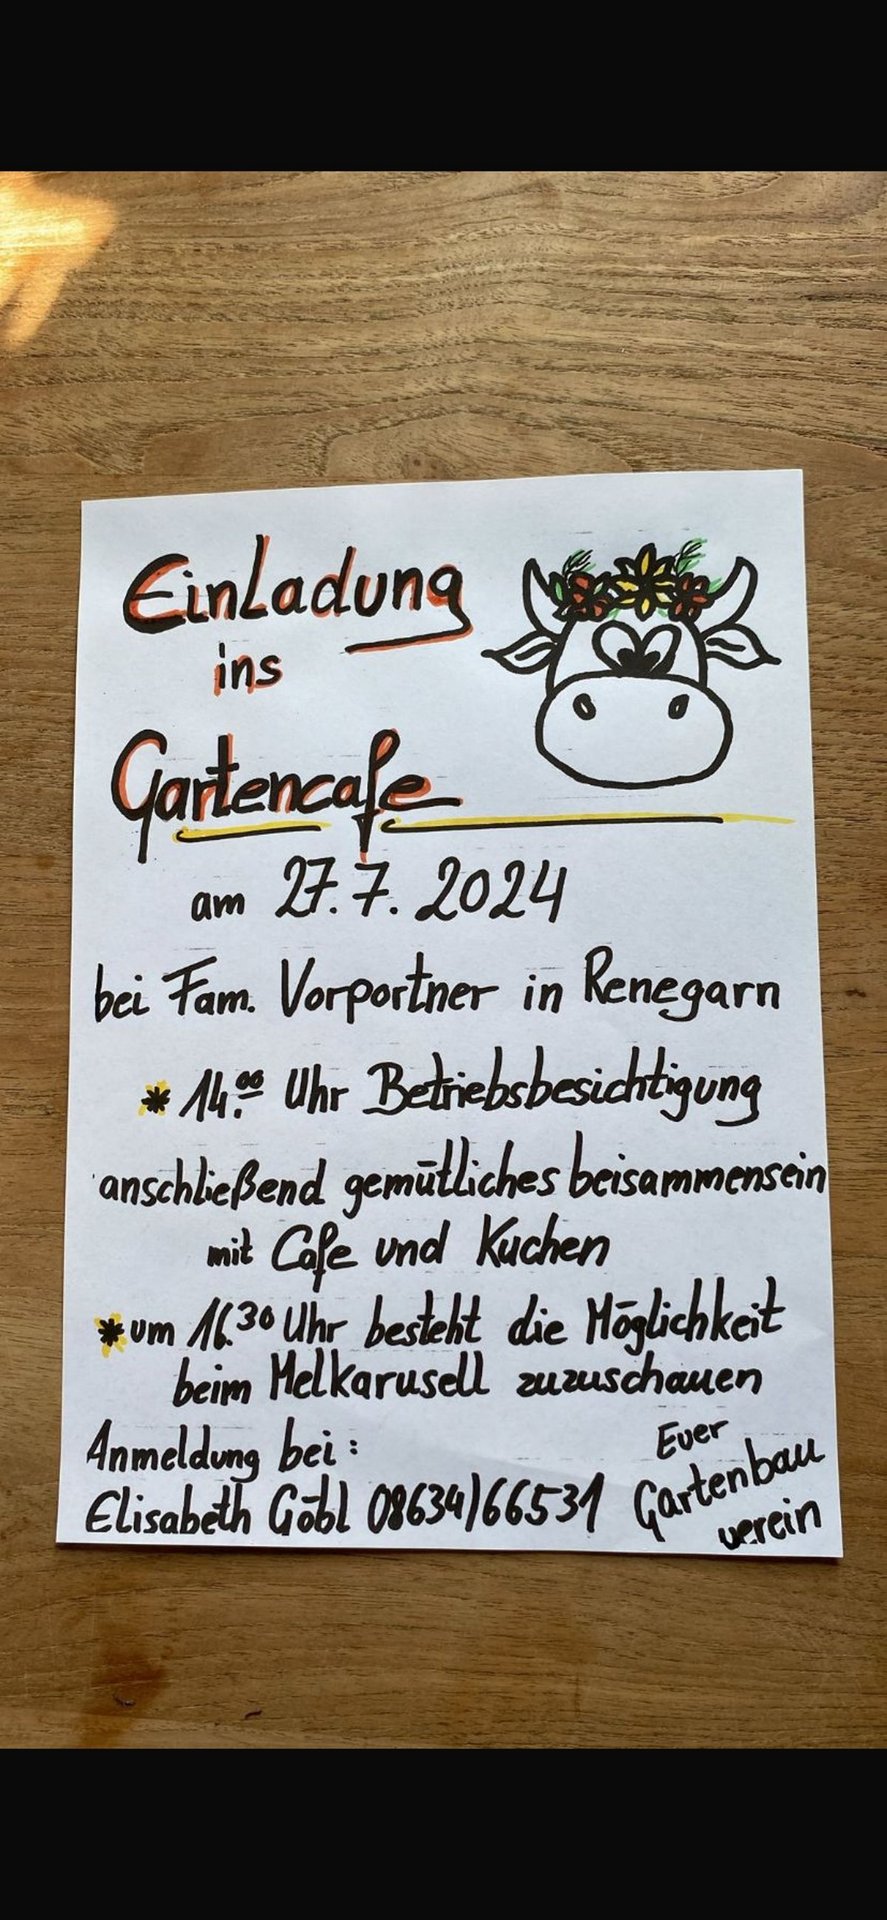 Einladung
ins
Gartencafe
am 27.7.2024
bei Fam. Vorportner in Renegarn
* 14.00 Uhr Betriebsbesichtigung
anschließend gemütliches beisammensein
mit Cafe und Kuchen
* um 16.30 Uhr besteht die Möglichkeit
beim Melkarusell zuzuschauen
Anmeldung bei:
Elisabeth Göbl 08634/66531
Euer
Gartenbau
verein